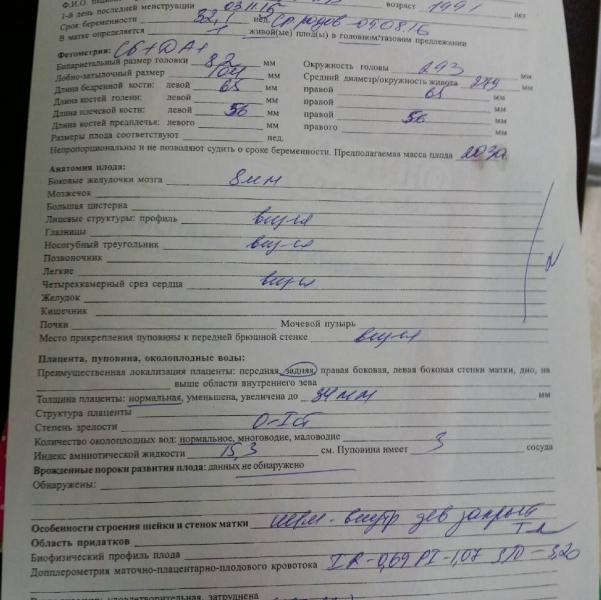 1-й день последней менструации 03.11.15 возраст 1991 лет
Срок беременности 32,1 нед. Ср родов 09.08.16
В матке определяется 1 живой(ые) плод(ы) в головном/тазовом предлежании
Фетометрия:
Бипариетальный размер головки 82 мм Окружность головы 293 мм
Лобно-затылочный размер 104 мм Средний диаметр/окружность живота 279 мм
Длина бедренной кости: левой 63 мм правой 63 мм
Длина костей голени: левой мм правой мм
Длина плечевой кости: левой 56 мм правой 56 мм
Длина костей предплечья: левого мм правого мм
Размеры плода соответствуют нед.
Непропорциональны и не позволяют судить о сроке беременности. Предполагаемая масса плода
Анатомия плода:
Боковые желудочки мозга 8 мм
Мозжечок
Большая цистерна
Лицевые структуры: профиль виз-я
Глазницы
Носогубный треугольник виз-я
Позвоночник
Легкие
Четырехкамерный срез сердца виз-я
N
Желудок
Кишечник
Почки Мочевой пузырь
Место прикрепления пуповины к передней брюшной стенке виз-я
Плацента, пуповина, околоплодные воды:
Преимущественная локализация плаценты: передняя, задняя, правая боковая, левая боковая стенки матки, дно, на
выше области внутреннего зева
Толщина плаценты: нормальная, уменьшена, увеличена до 34 мм мм
Структура плаценты
Степень зрелости 0-I ст
Количество околоплодных вод: нормальное, многоводие, маловодие
Индекс амниотической жидкости 15,3 см. Пуповина имеет 3 сосуда
Врожденные пороки развития плода: данных не обнаружено
Обнаружены:
Особенности строения шейки и матки внутр зев закрыт
Область придатков
Биофизический профиль плода
Допплерометрия маточно-плацентарно-плодового кровотока IR-0,69 PI-1,07 3,20
удовлетворительная, затруднена